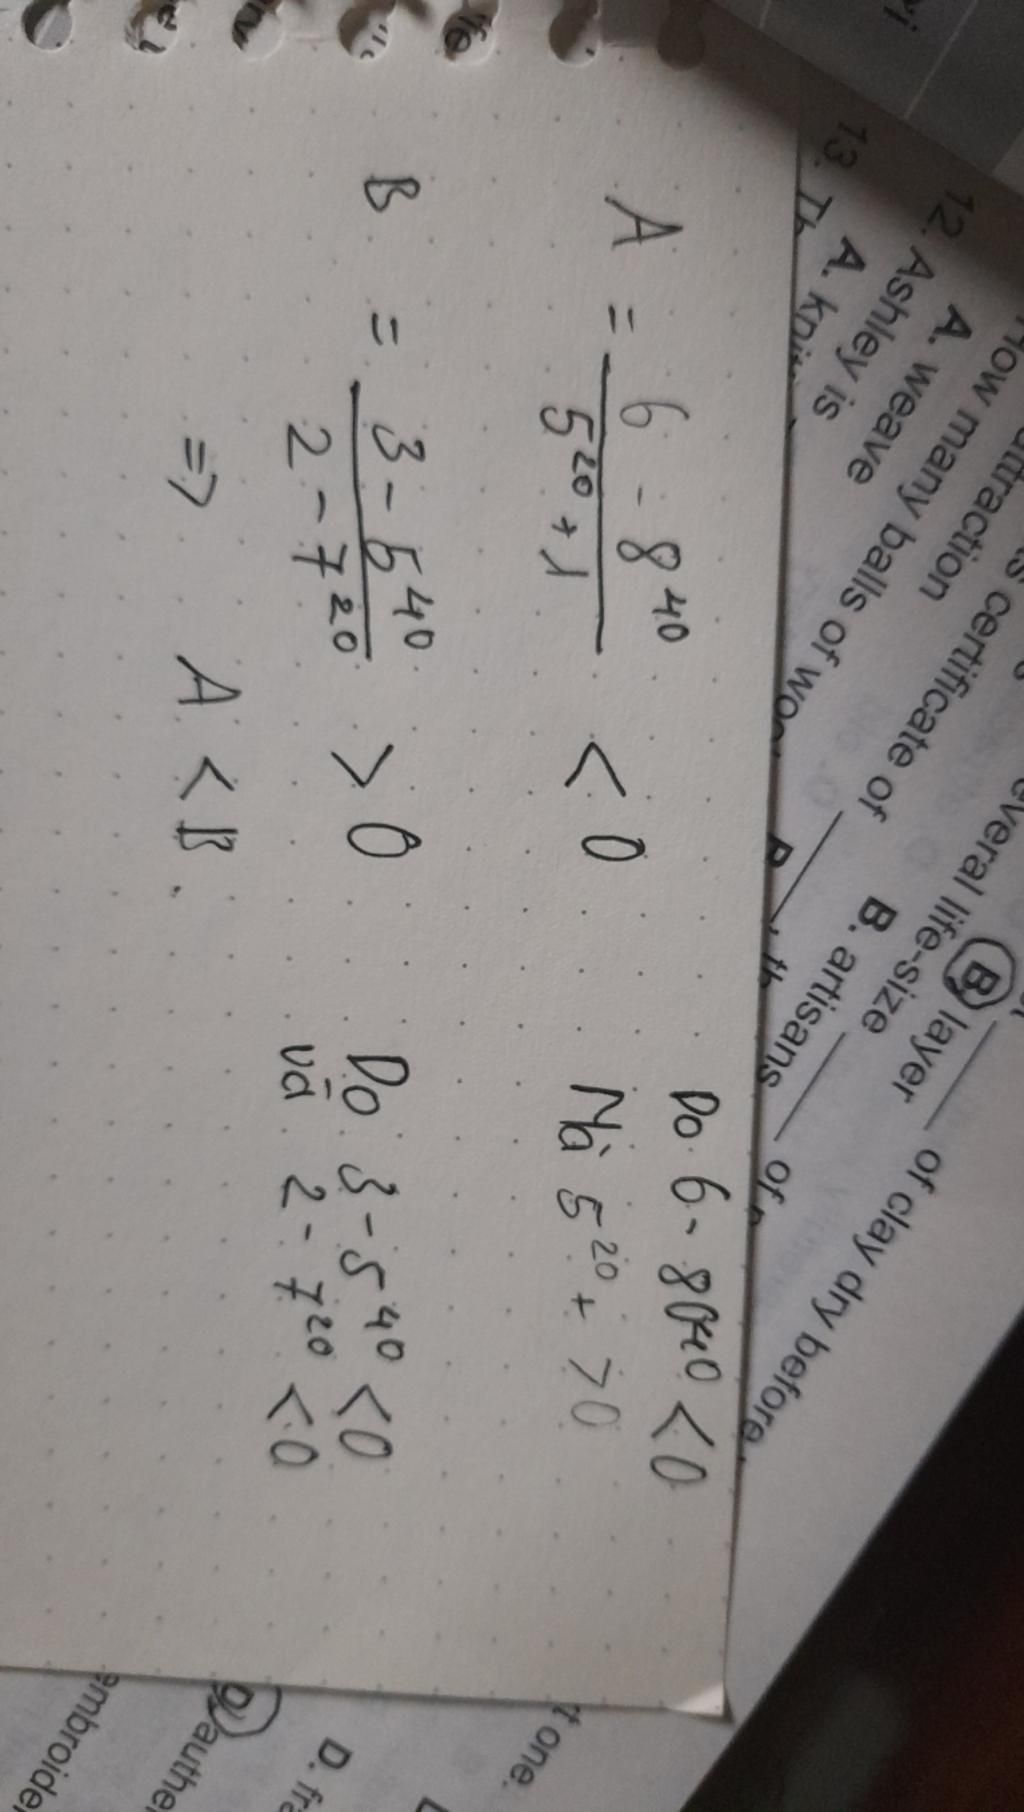 A = \frac{6 - 8^{40}}{5^{20} + 1} < 0
Do 6 - 8^{40} < 0
Mà 5^{20} + > 0
B = \frac{3 - 5^{40}}{2 - 7^{20}} > 0
Do 3 - 5^{40} < 0
và 2 - 7^{20} < 0
=> A < B.
everal life-size
B. layer
of clay dry before
s certificate of
B. artisans
of
attraction
How many balls of
A. weave
12. Ashley is
A.
13.
t one.
D. fr
D. authe
embroide